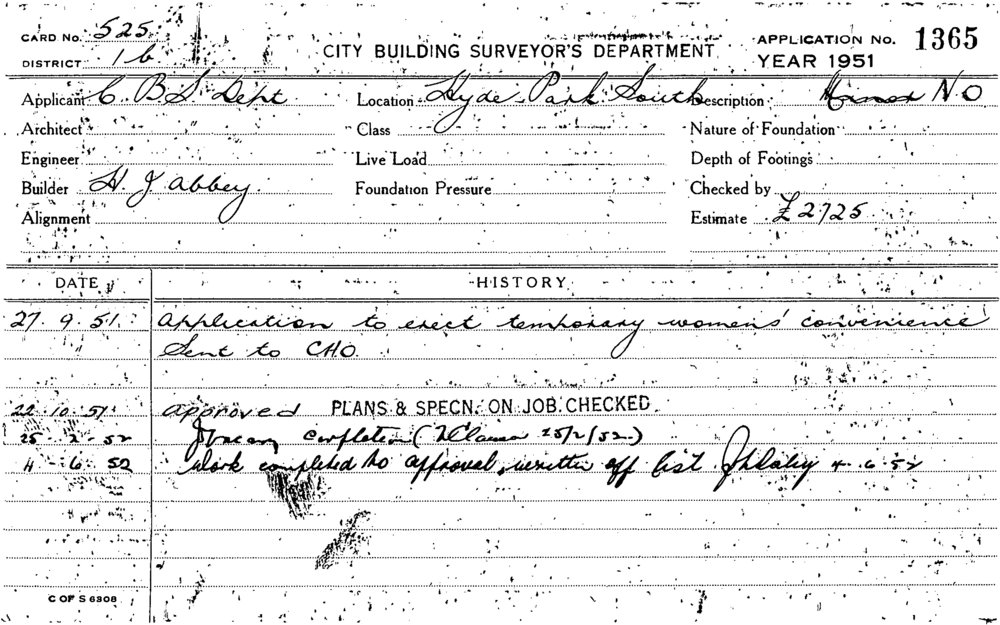 CARD No. 525
DISTRICT 1b
CITY BUILDING SURVEYOR'S DEPARTMENT
APPLICATION No. 1365
YEAR 1951
Applicant C B S Dept Location Hyde Park South Description N.O
Architect Class Nature of Foundation
Engineer Live Load Depth of Footings
Builder H. J Abbey Foundation Pressure Checked by
Alignment Estimate £2725
DATE HISTORY
27. 9. 51 Application to erect temporary womens' convenience
Sent to CHO.
22. 10. 51 Approved PLANS & SPECN. ON JOB CHECKED
25 2 52 completion ( 25/2/52)
4 6 52 Work completed to approval, written off list 4. 6. 52
C OF S 6308